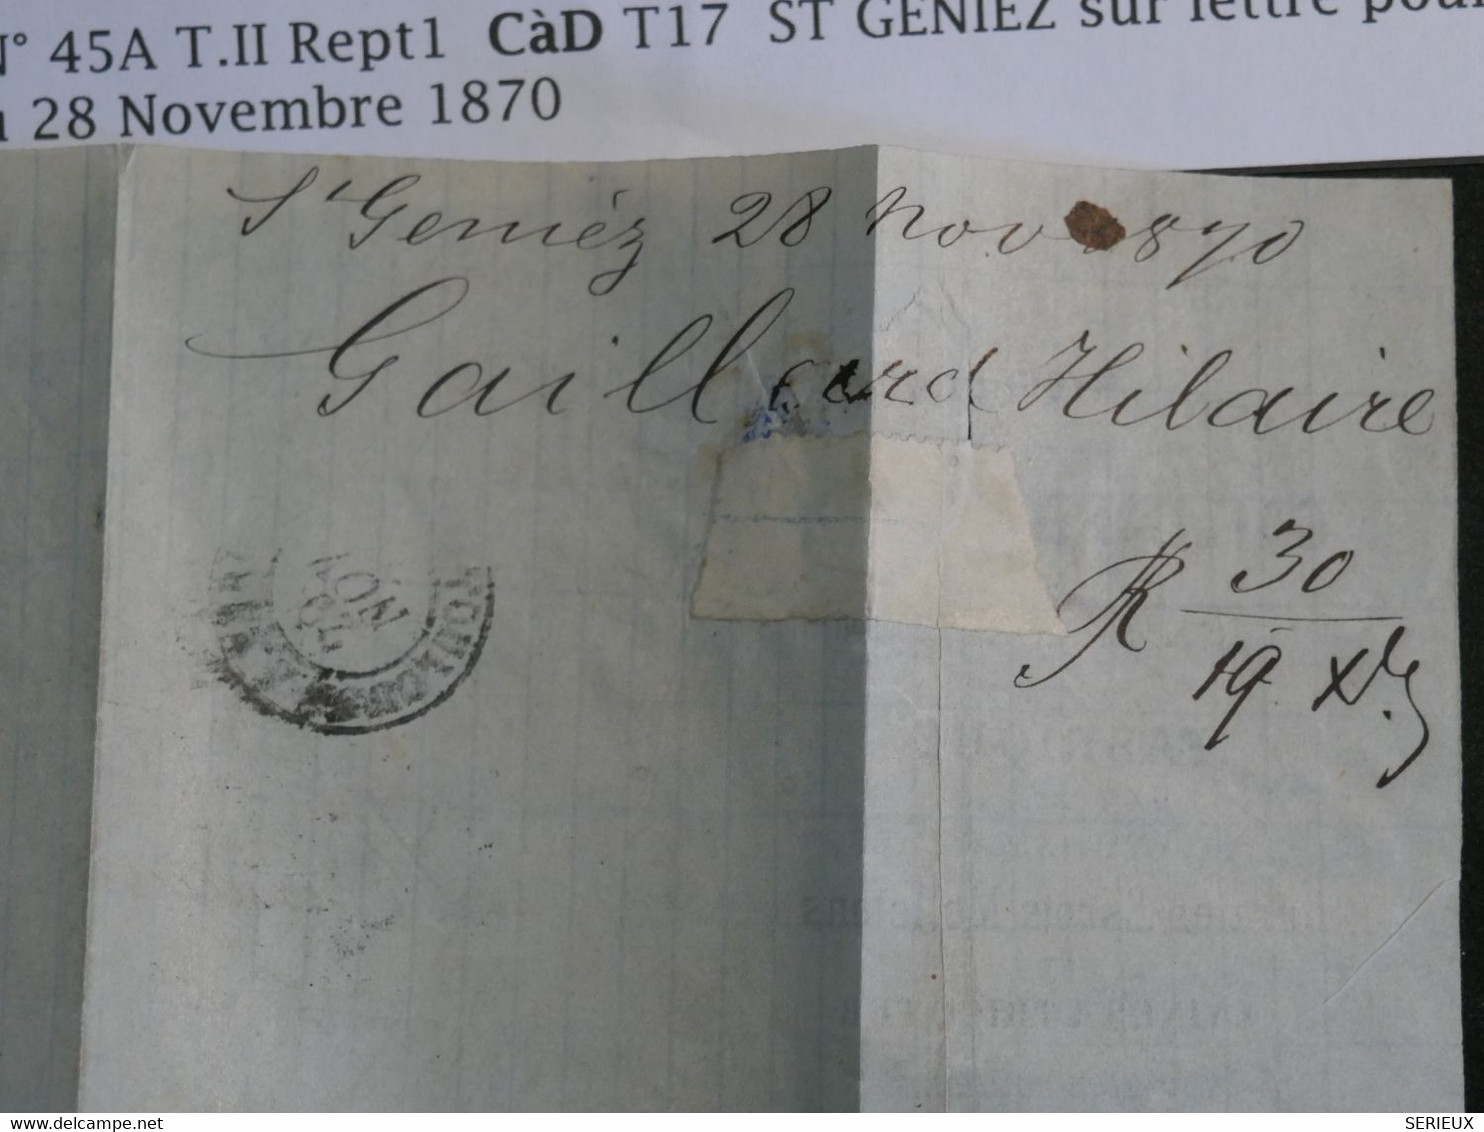 N° 45A T.II Rept1 CàD T17 ST GENIEZ sur lettre pour
28 Novembre 1870
St Geniéz 28 Nov 1870
Gaillard Hilaire
R 30
19 Xbre
30
NOV
SERIEUX